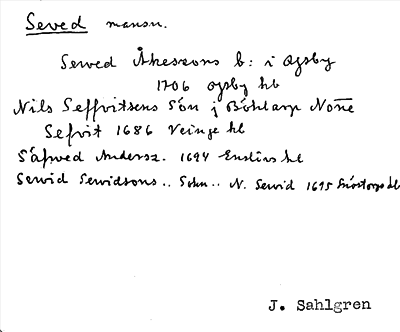 Seved mansn.
Sewed Åkessons b: i Ogsby
1706 Ogsby kb
Nils Seffvitsens Sön j Böhlarp None
Sefvit 1686 Veinge kl
Säfwed Anderss. 1694 Enslövs kl
Sewid Sewidsons .. Sohn .. N. Sewid 1695
J. Sahlgren